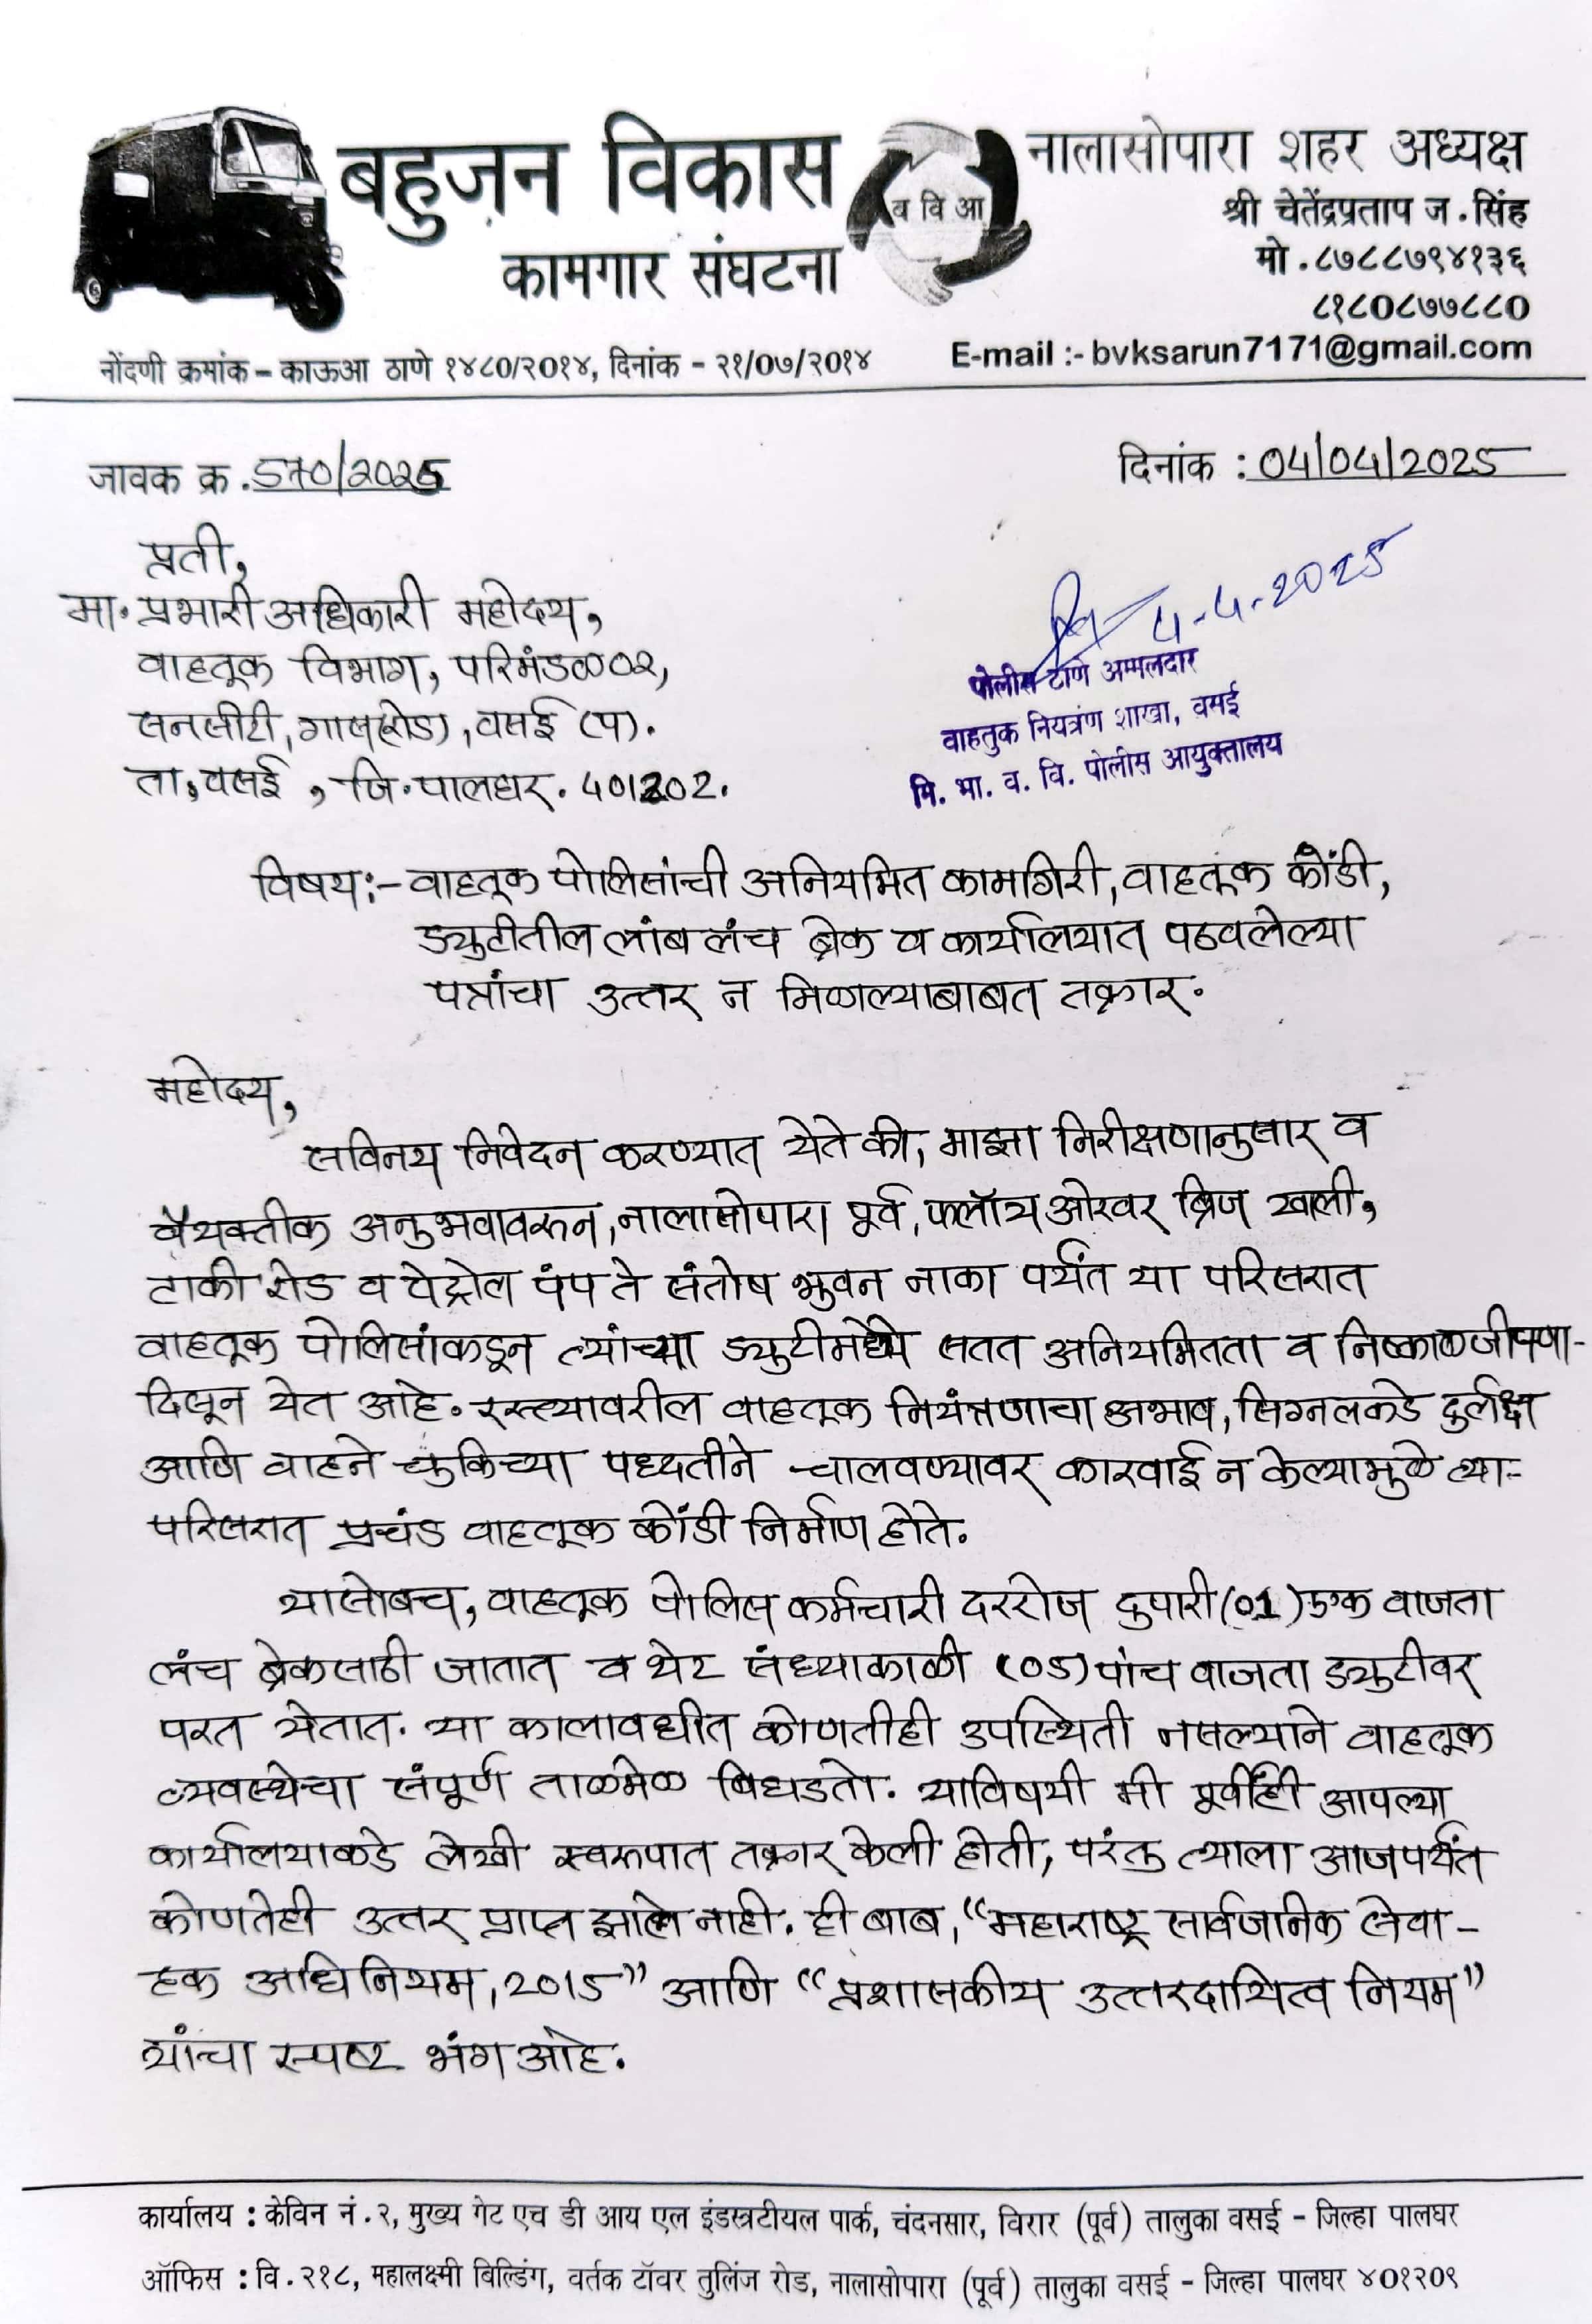 बहुजन विकास
कामगार संघटना
ब वि आ
नालासोपारा शहर अध्यक्ष
श्री चेतेंद्रप्रताप ज . सिंह
मो . ८७८८७९४१३६
८१८०८७७८८०
नोंदणी क्रमांक – काऊआ ठाणे १४८०/२०१४, दिनांक - २१/०७/२०१४
E-mail :- bvksarun7171@gmail.com
जावक क्र . 570/2025
दिनांक : 04/04/2025
प्रती,
मा. प्रभारी अधिकारी महोदय,
वाहतूक विभाग, परिमंडळ 02,
सनसीटी, गास(रोड), वसई (प).
ता, वसई , जि. पालघर. 401202.
4-4-2025
पोलीस ठाणे अम्मलदार
वाहतुक नियत्रंण शाखा, वसई
मि. भा. व. वि. पोलीस आयुक्तालय
विषय:- वाहतूक पोलिसांची अनियमित कामगिरी, वाहतूक कोंडी,
ड्युटीतील लांब लंच ब्रेक व कार्यालयात पठवलेल्या
पत्रांचा उत्तर न मिळाल्याबाबत तक्रार.
महोदय,
सविनय निवेदन करण्यात येते की, माझा निरीक्षणानुसार व
वैयक्तीक अनुभवावरून, नालासोपारा पूर्व, फ्लॉय ओव्हर ब्रिज खाली,
टाकी रोड व पेट्रोल पंप ते संतोष भुवन नाका पर्यंत या परिसरात
वाहतूक पोलिसांकडून त्यांच्या ड्युटीमध्ये सतत अनियमितता व निष्काळजीपणा-
दिसून येत आहे. रस्त्यावरील वाहतूक नियंत्रणाचा अभाव, सिग्नलकडे दुर्लक्ष
आणि वाहने चुकिच्या पध्दतीने चालवण्यावर कारवाई न केल्यामुळे त्या-
परिसरात प्रचंड वाहतूक कोंडी निर्माण होते.
यासोबच, वाहतूक पोलिस कर्मचारी दररोज दुपारी (01) एक वाजता
लंच ब्रेकसाठी जातात व थेट संध्याकाळी (05) पांच वाजता ड्युटीवर
परत येतात. या कालावधीत कोणतीही उपस्थिती नसल्याने वाहतूक
व्यवस्थेचा संपूर्ण ताळमेळ बिघडतो. याविषयी मी पूर्वीही आपल्या
कार्यालयाकडे लेखी स्वरूपात तक्रार केली होती, परंतु त्याला आजपर्यंत
कोणतेही उत्तर प्राप्त झाले नाही. ही बाब, “महाराष्ट्र सार्वजानिक सेवा-
हक अधिनियम, 2015” आणि “प्रशासकीय उत्तरदायित्व नियम”
यांचा स्पष्ट भंग आहे.
कार्यालय : केविन नं . २, मुख्य गेट एच डी आय एल इंडस्त्रटीयल पार्क, चंदनसार, विरार (पूर्व) तालुका वसई - जिल्हा पालघर
ऑफिस : वि . २१८, महालक्ष्मी बिल्डिंग, वर्तक टॉवर तुलिंज रोड, नालासोपारा (पूर्व) तालुका वसई - जिल्हा पालघर ४०१२०९